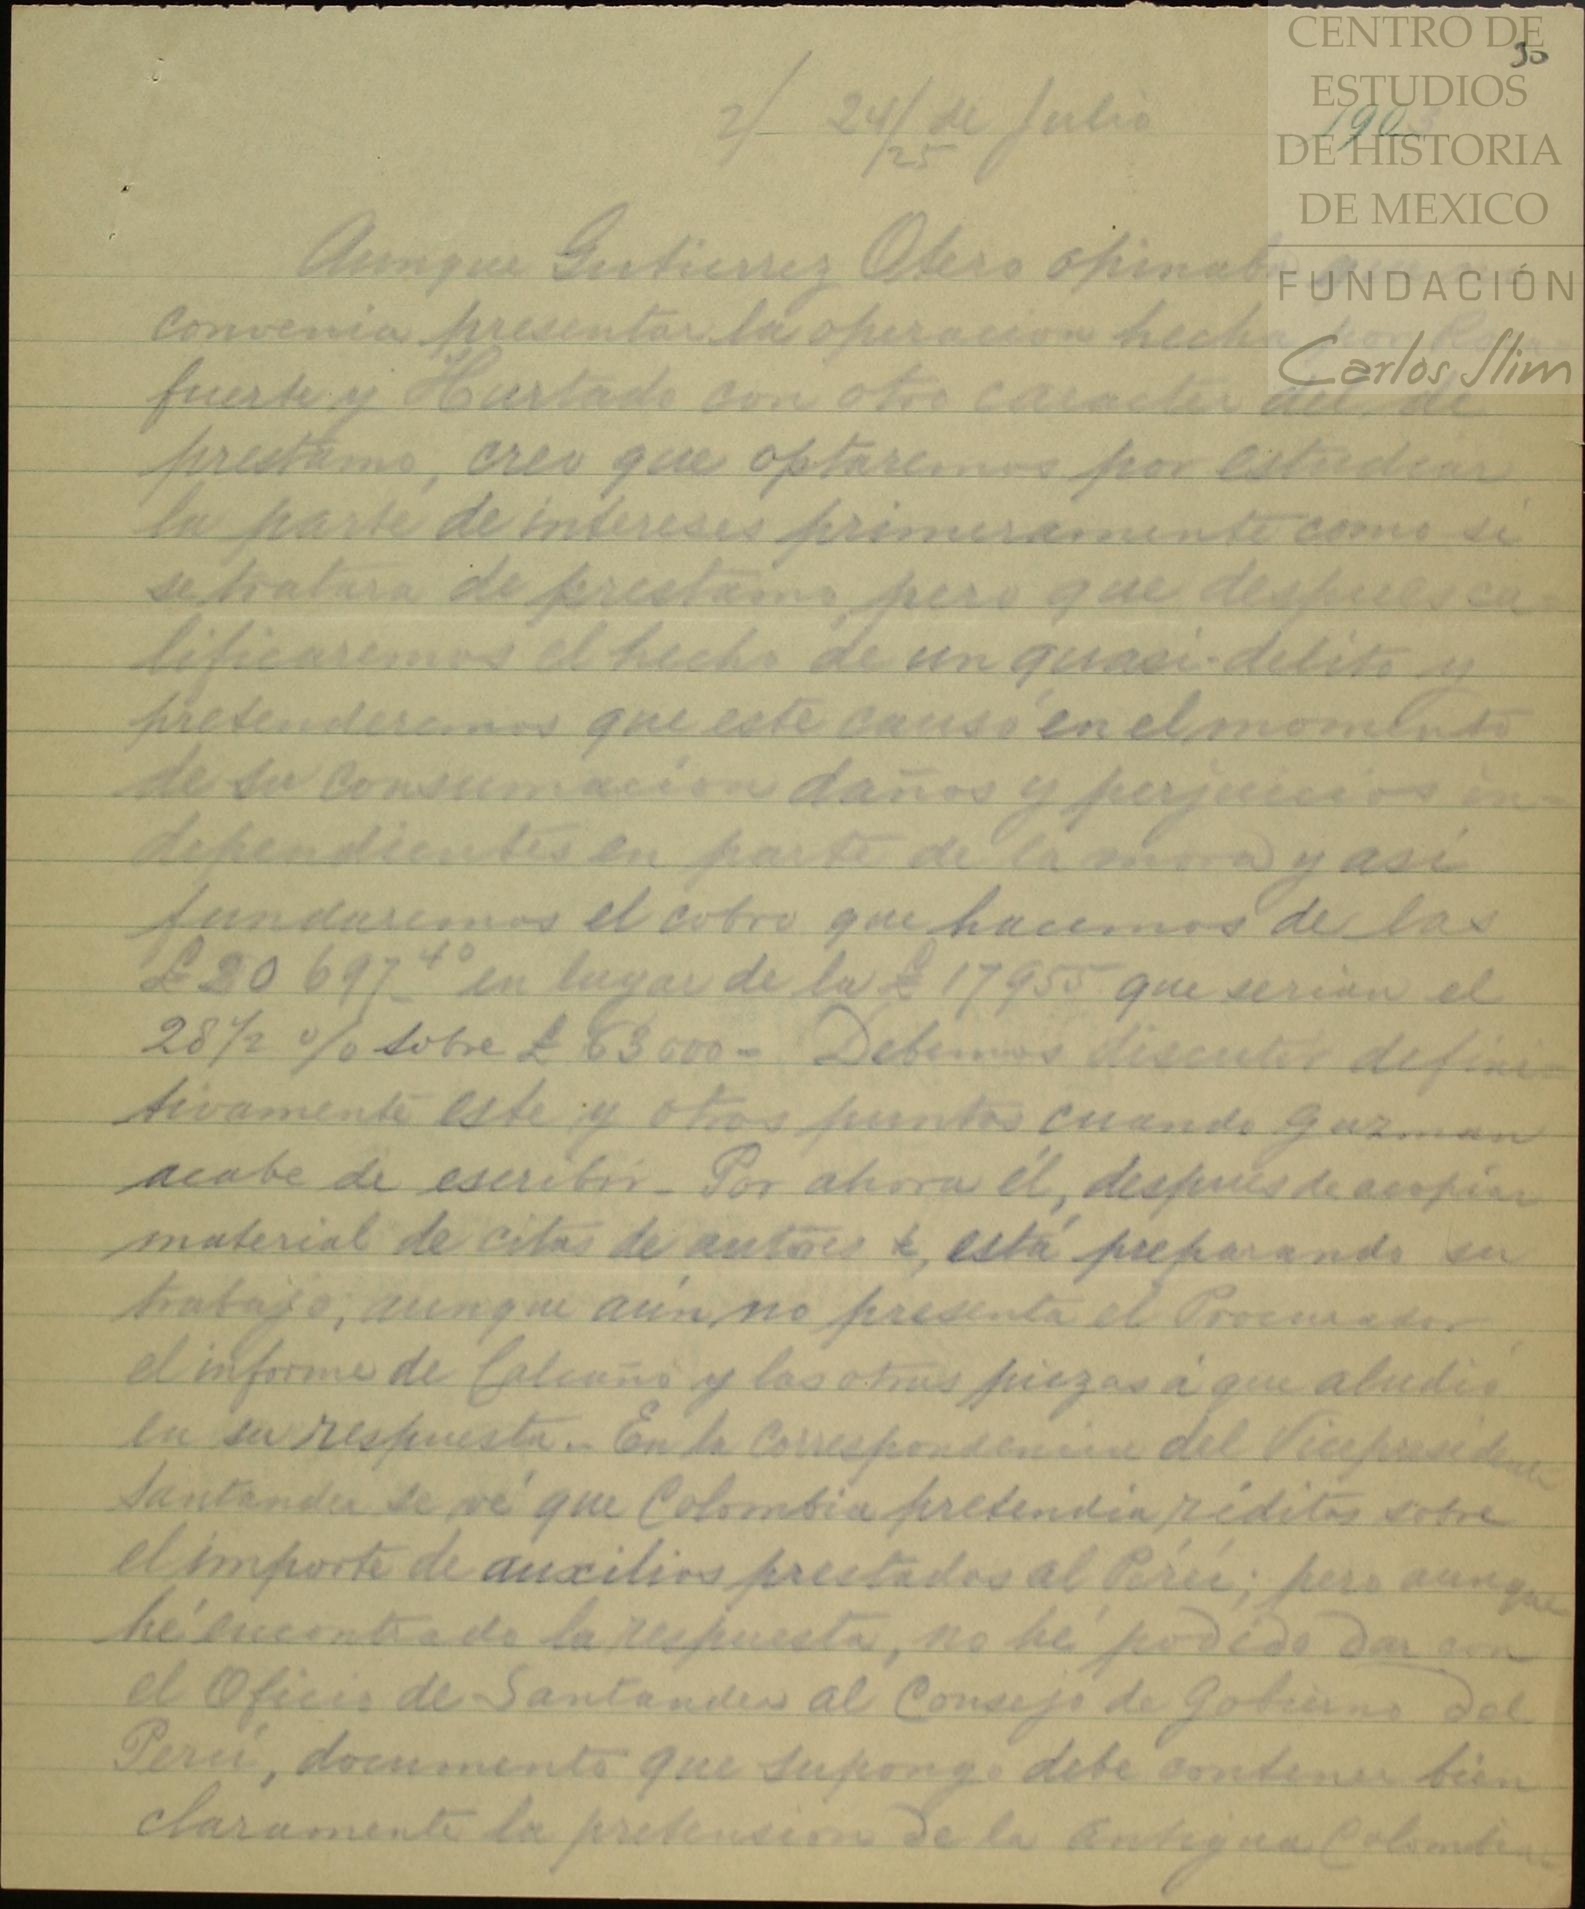 CENTRO DE
ESTUDIOS
DE HISTORIA
DE MEXICO
FUNDACIÓN
Carlos Slim
30
1903
2/ 24/25 de Julio
Aunque Gutierrez Otero opinaba que no
convenia presentar la operacion hecha por Roca-
fuerte y Hurtado con otro caracter del de
prestamo, creo que optaremos por estudiar
la parte de intereses primeramente como si
se tratara de prestamo, pero que despues ca-
lificaremos el hecho de un quasi-delito y
pretenderemos que este causó en el momento
de su consumacion daños y perjuicios in-
dependientes en parte de la mora y así
fundaremos el cobro que hacemos de las
£ 20 697.40 en lugar de la £ 17955 que serian el
28 1/2 % sobre £ 63000 - Debemos discutir defini-
tivamente este y otros puntos cuando Guzman
acabe de escribir - Por ahora él, despues de acopiar
material de citas de autores &, está preparando su
trabajo, aunque aún no presenta el Procurador
el informe de Calcaño y las otras piezas á que aludió
en su respuesta. - En la correspondencia del Vicepresidente
Santander se vé que Colombia pretendia réditos sobre
el importe de auxilios prestados al Perú; pero aunque
hé encontrado la respuesta, no hé podido dar con
el Oficio de Santander al Consejo de Gobierno del
Perú, documento que supongo debe contener bien
claramente la pretension de la antigua Colombia -